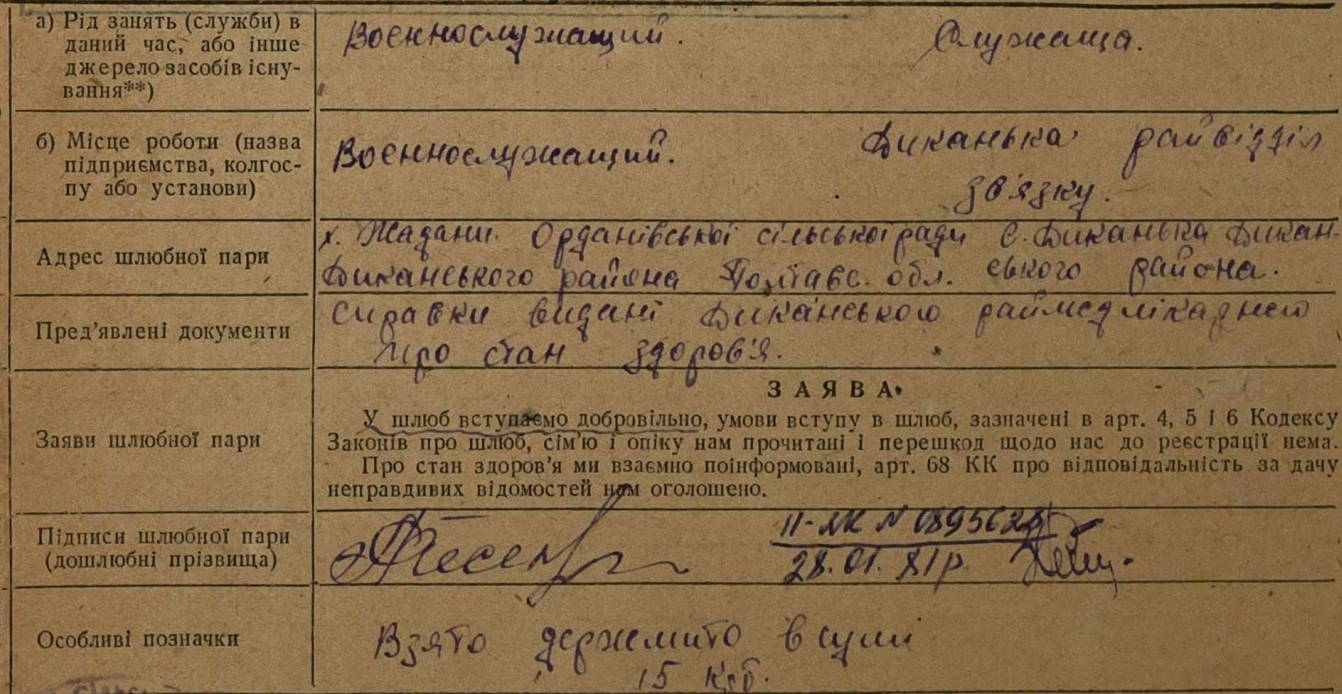 а) Рід занять (служби) в даний час, або інше джерело засобів існування**)
Воєннослужащий. Служаща.
б) Місце роботи (назва підприємства, колгоспу або установи)
Воєннослужащий. Диканька райвідділ
зв'язку.
Адрес шлюбної пари
х. Жадани Орданівської сільської ради с. Диканька Дикан-
Диканського района Полтавс. обл. ського района.
Пред'явлені документи
Справки видані Диканського раймедлікарнею
про стан здоров'я.
Заяви шлюбної пари
ЗАЯВА
У шлюб вступаємо добровільно, умови вступу в шлюб, зазначені в арт. 4, 5 і 6 Кодексу
Законів про шлюб, сім'ю і опіку нам прочитані і перешкод щодо нас до реєстрації нема.
Про стан здоров'я ми взаємно поінформовані, арт. 68 КК про відповідальність за дачу
неправдивих відомостей нам оголошено.
Підписи шлюбної пари
(дошлюбні прізвища)
28.01.81р.
Особливі позначки
Взято держмито в сумі
15 крб.